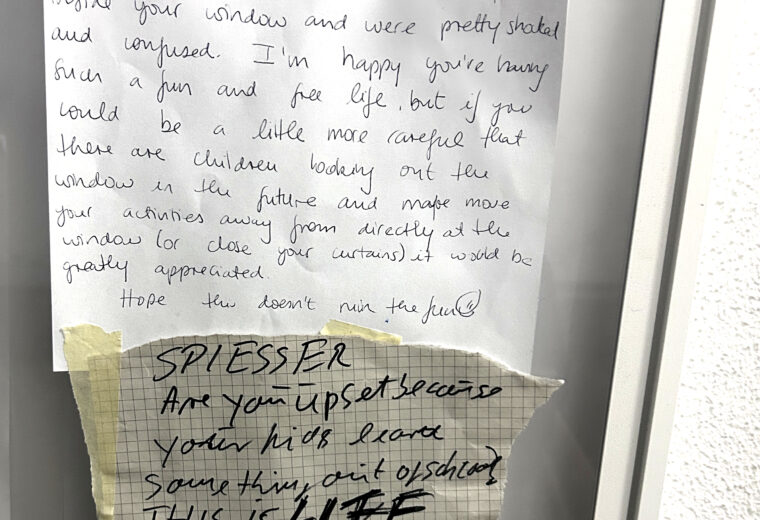 inside your window and were pretty shaked
and confused. I'm happy you're having
such a fun and free life, but if you
could be a little more careful that
there are children looking out the
window in the future and maybe move
your activities away from directly at the
window (or close your curtains) it would be
greatly appreciated.
Hope this doesn't ruin the fun
SPIESSER
Are you upset because
your kids learn
something out of school
THIS IS LIFE